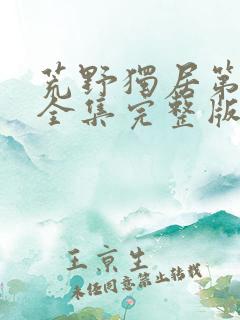 荒野獨居第
全集完整版
王京生
未经同意禁止转载